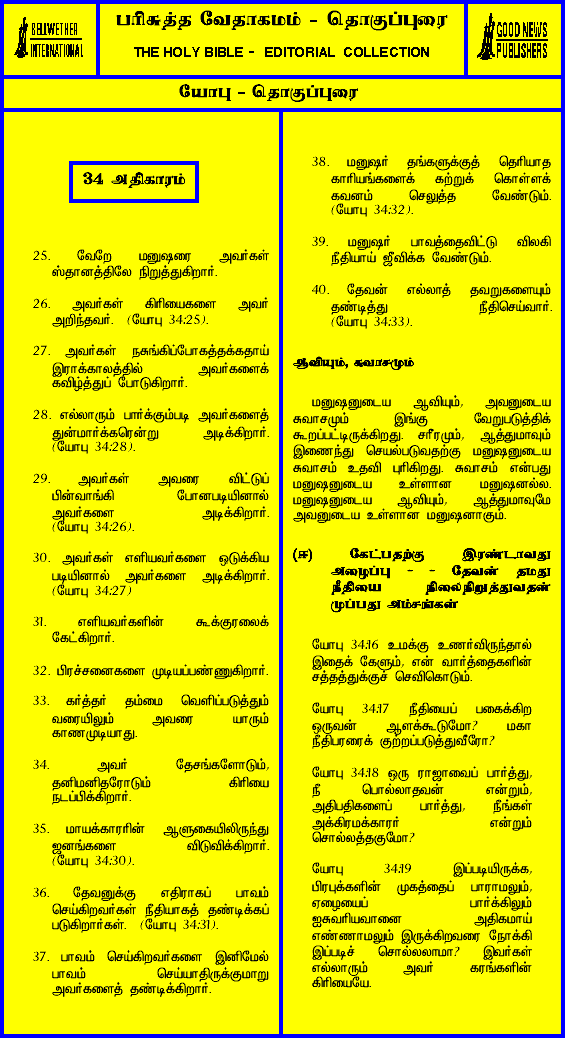 BELLWETHER
INTERNATIONAL
பரிசுத்த வேதாகமம் - தொகுப்புரை
THE HOLY BIBLE - EDITORIAL COLLECTION
GOOD NEWS
PUBLISHERS
யோபு - தொகுப்புரை
34 அதிகாரம்
25. வேறே மனுஷரை அவர்கள்
ஸ்தானத்திலே நிறுத்துகிறார்.
26. அவர்கள் கிரியைகளை அவர்
அறிந்தவர். (யோபு 34:25).
27. அவர்கள் நசுங்கிப்போகத்தக்கதாய்
இராக்காலத்தில் அவர்களைக்
கவிழ்த்துப் போடுகிறார்.
28. எல்லாரும் பார்க்கும்படி அவர்களைத்
துன்மார்க்கரென்று அடிக்கிறார்.
(யோபு 34:28).
29. அவர்கள் அவரை விட்டுப்
பின்வாங்கி போனபடியினால்
அவர்களை அடிக்கிறார்.
(யோபு 34:26).
30. அவர்கள் எளியவர்களை ஒடுக்கிய
படியினால் அவர்களை அடிக்கிறார்.
(யோபு 34:27)
31. எளியவர்களின் கூக்குரலைக்
கேட்கிறார்.
32. பிரச்சனைகளை முடியப்பண்ணுகிறார்.
33. கர்த்தர் தம்மை வெளிப்படுத்தும்
வரையிலும் அவரை யாரும்
காணமுடியாது.
34. அவர் தேசங்களோடும்,
தனிமனிதரோடும் கிரியை
நடப்பிக்கிறார்.
35. மாயக்காரரின் ஆளுகையிலிருந்து
ஜனங்களை விடுவிக்கிறார்.
(யோபு 34:30).
36. தேவனுக்கு எதிராகப் பாவம்
செய்கிறவர்கள் நீதியாகத் தண்டிக்கப்
படுகிறார்கள். (யோபு 34:31).
37. பாவம் செய்கிறவர்களை இனிமேல்
பாவம் செய்யாதிருக்குமாறு
அவர்களைத் தண்டிக்கிறார்.
38. மனுஷர் தங்களுக்குத் தெரியாத
காரியங்களைக் கற்றுக் கொள்ளக்
கவனம் செலுத்த வேண்டும்.
(யோபு 34:32).
39. மனுஷர் பாவத்தைவிட்டு விலகி
நீதியாய் ஜீவிக்க வேண்டும்.
40. தேவன் எல்லாத் தவறுகளையும்
தண்டித்து நீதிசெய்வார்.
(யோபு 34:33).
ஆவியும், சுவாசமும்
மனுஷனுடைய ஆவியும், அவனுடைய
சுவாசமும் இங்கு வேறுபடுத்திக்
கூறப்பட்டிருக்கிறது. சரீரமும், ஆத்துமாவும்
இணைந்து செயல்படுவதற்கு மனுஷனுடைய
சுவாசம் உதவி புரிகிறது. சுவாசம் என்பது
மனுஷனுடைய உள்ளான மனுஷனல்ல.
மனுஷனுடைய ஆவியும், ஆத்துமாவுமே
அவனுடைய உள்ளான மனுஷனாகும்.
(ஈ) கேட்பதற்கு இரண்டாவது
அழைப்பு - - தேவன் தமது
நீதியை நிலைநிறுத்துவதன்
முப்பது அம்சங்கள்
யோபு 34:16 உமக்கு உணர்விருந்தால்
இதைக் கேளும், என் வார்த்தைகளின்
சத்தத்துக்குச் செவிகொடும்.
யோபு 34:17 நீதியைப் பகைக்கிற
ஒருவன் ஆளக்கூடுமோ? மகா
நீதிபரரைக் குற்றப்படுத்துவீரோ?
யோபு 34:18 ஒரு ராஜாவைப் பார்த்து,
நீ பொல்லாதவன் என்றும்,
அதிபதிகளைப் பார்த்து, நீங்கள்
அக்கிரமக்காரர் என்றும்
சொல்லத்தகுமோ?
யோபு 34:19 இப்படியிருக்க,
பிரபுக்களின் முகத்தைப் பாராமலும்,
ஏழையைப் பார்க்கிலும்
ஐசுவரியவானை அதிகமாய்
எண்ணாமலும் இருக்கிறவரை நோக்கி
இப்படிச் சொல்லலாமா? இவர்கள்
எல்லாரும் அவர் கரங்களின்
கிரியையே.